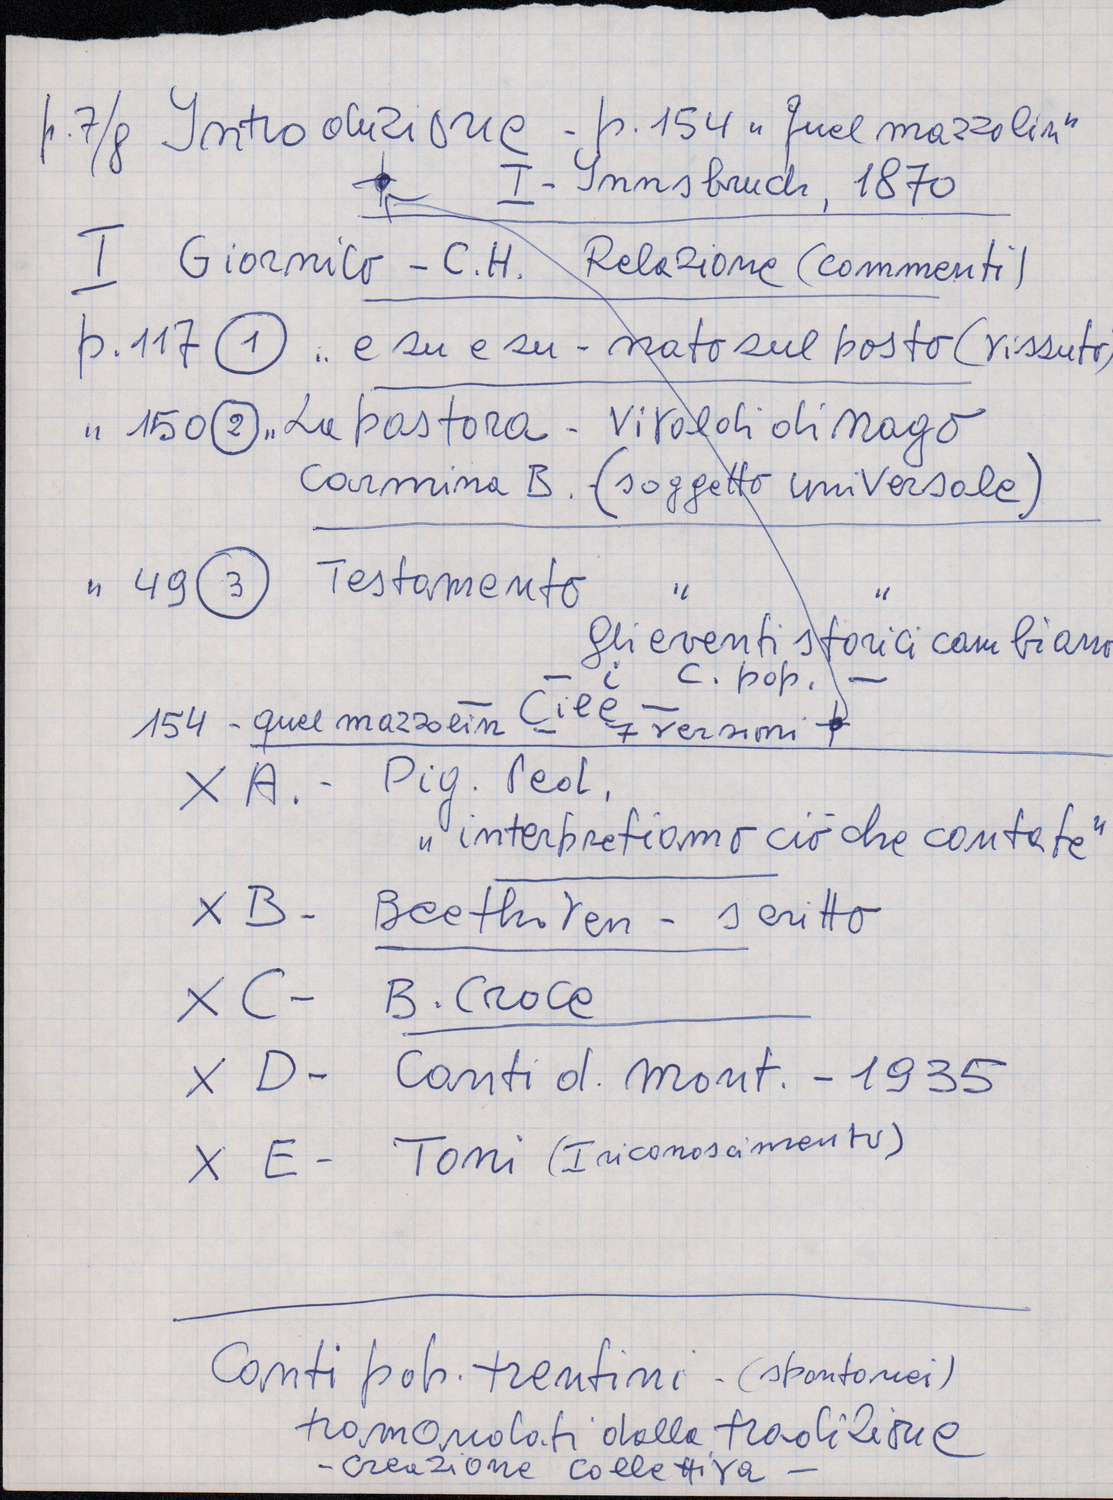 p. 7/8 Introduzione - p. 154 "Quel mazzolin"
I - Innsbruch, 1870
I Giornico - C.H. Relazione (commenti)
p. 117 1 " e su e su - nato sul posto (vissuto)
" 150 2 " La pastora - Vivaldi di Nago
Carmina B. - (soggetto universale)
" 49 3 Testamento " "
gli eventi storici cambiano
- i C. pop. -
154 - quel mazzolin - 7 versioni
X A. - Pig. Ped.
"interpretiamo ciò che cantate"
X B - Beethoven - scritto
X C - B. Croce
X D - Canti d. mont. - 1935
X E - Toni (I riconoscimento)
Canti pop. trentini - (spontanei)
tramandati dalla tradizione
- creazione collettiva -